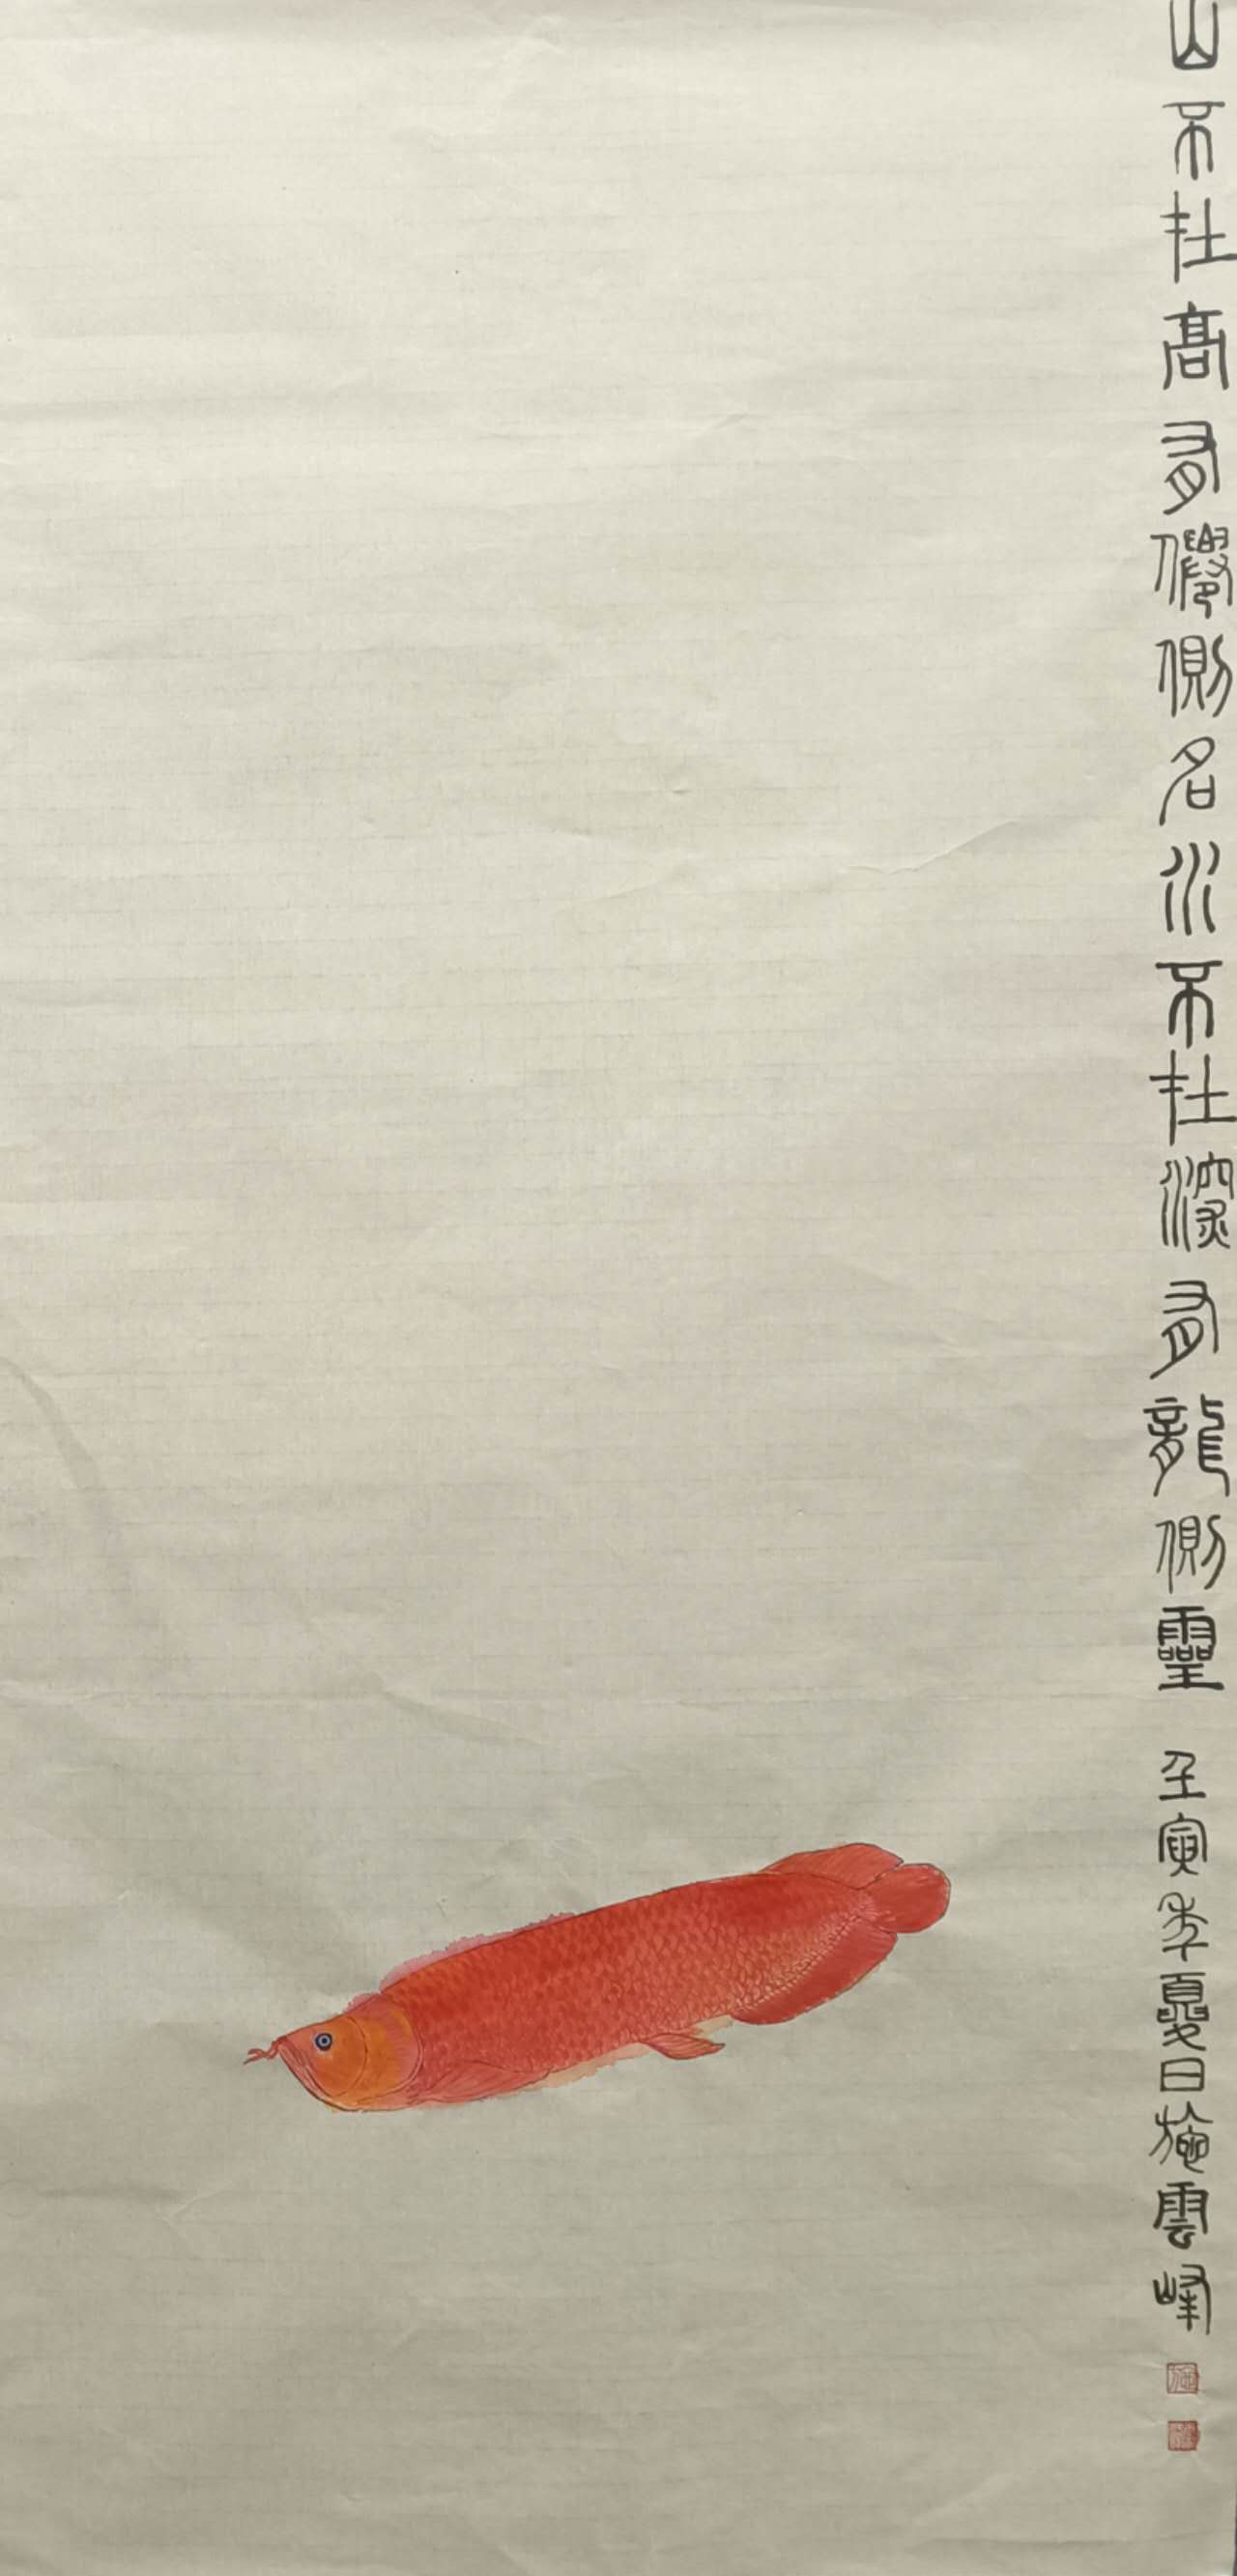 山不在高有僊側名水不在深有龍側靈 壬寅年夏日施雲峰